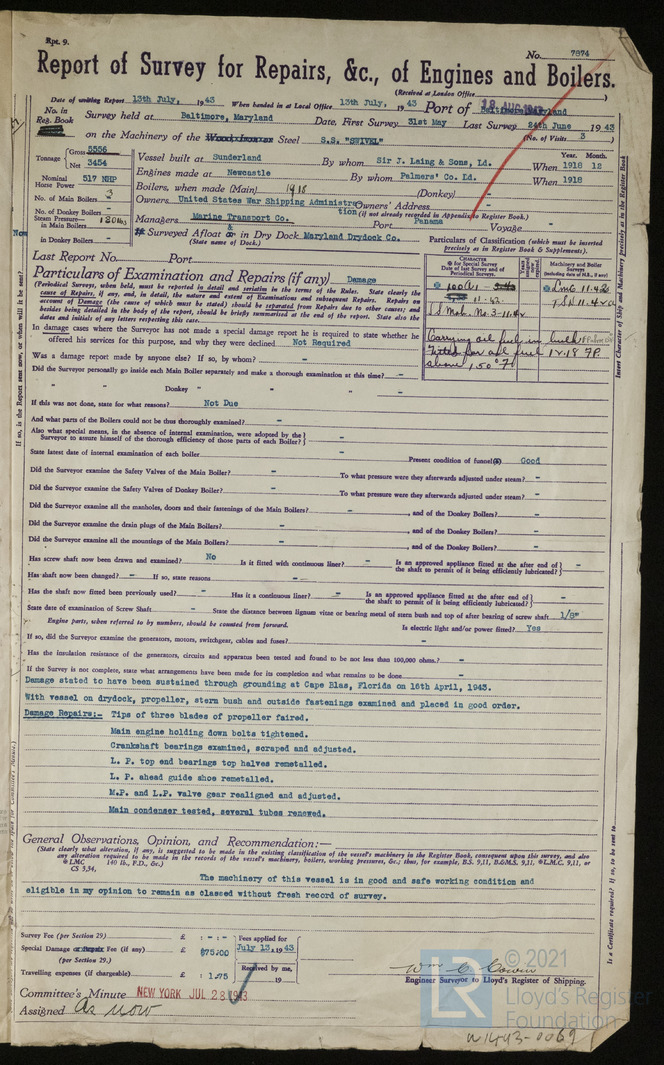 Rpt. 9.
No. 7874
Report of Survey for Repairs, &c., of Engines and Boilers.
(Received at London Office
Date of writing Report 13th July, 1943 When handed in at Local Office 13th July, 1943 Port of Baltimore, Maryland
No. in Reg. Book Survey held at Baltimore, Maryland Date, First Survey 31st May Last Survey 24th June 1943
(No. of Visits 3 )
on the Machinery of the Wood, Iron or Steel S.S. "SWIVEL"
Tonnage Gross 5556 Net 3454
Vessel built at Sunderland By whom Sir J. Laing & Sons, Ld. When Year. Month. 1918 12
Engines made at Newcastle By whom Palmers' Co. Ld. When 1918
Nominal Horse Power 517 NHP
Boilers, when made (Main) 1918 (Donkey) -
No. of Main Boilers 3
Owners United States War Shipping Administration Owners' Address -
(if not already recorded in Appendix to Register Book.)
No. of Donkey Boilers -
Steam Pressure- in Main Boilers 180 lbs
in Donkey Boilers -
Managers Marine Transport Co. Port Panama Voyage -
If Surveyed Afloat & or in Dry Dock Maryland Drydock Co.
(State name of Dock.)
Particulars of Classification (which must be inserted precisely as in Register Book & Supplements).
Last Report No. Port
Particulars of Examination and Repairs (if any) Damage
(Periodical Surveys, when held, must be reported in detail and seriatim in the terms of the Rules. State clearly the cause of Repairs, if any, and, in detail, the nature and extent of Examinations and subsequent Repairs. Repairs on account of Damage (the cause of which must be stated) should be separated from Repairs due to other causes; and besides being detailed in the body of the report, should be briefly summarized at the end of the report. State also the dates and initials of any letters respecting this case.
CHARACTER
for Special Survey
Date of last Survey and of Periodical Surveys.
Machinery and Boiler Surveys
(Including date of N.B., if any)
100A1
11.42
S.S. Mob. No. 3-11.42
LMC 11.42
T.S.N 11.42
Carrying oil fuel in bulk
Fitted for oil fuel 12.18 F.P.
above 150° F.
In damage cases where the Surveyor has not made a special damage report he is required to state whether he
offered his services for this purpose, and why they were declined Not Required
Was a damage report made by anyone else? If so, by whom? -
Did the Surveyor personally go inside each Main Boiler separately and make a thorough examination at this time? -
" " Donkey " " " -
If this was not done, state for what reasons? Not Due
And what parts of the Boilers could not be thus thoroughly examined? -
Also what special means, in the absence of internal examination, were adopted by the Surveyor to assure himself of the thorough efficiency of those parts of each Boiler? -
State latest date of internal examination of each boiler - Present condition of funnel(s) Good
Did the Surveyor examine the Safety Valves of the Main Boiler? - To what pressure were they afterwards adjusted under steam? -
Did the Surveyor examine the Safety Valves of Donkey Boiler? - To what pressure were they afterwards adjusted under steam? -
Did the Surveyor examine all the manholes, doors and their fastenings of the Main Boilers? - , and of the Donkey Boilers? -
Did the Surveyor examine the drain plugs of the Main Boilers? - , and of the Donkey Boilers? -
Did the Surveyor examine all the mountings of the Main Boilers? - , and of the Donkey Boilers? -
Has screw shaft now been drawn and examined? No Is it fitted with continuous liner? - Is an approved appliance fitted at the after end of the shaft to permit of it being efficiently lubricated? -
Has shaft now been changed? - If so, state reasons -
Has the shaft now fitted been previously used? - Has it a continuous liner? - Is an approved appliance fitted at the after end of the shaft to permit of it being efficiently lubricated? -
State date of examination of Screw Shaft - State the distance between lignum vitæ or bearing metal of stern bush and top of after bearing of screw shaft 1/8"
Engine parts, when referred to by numbers, should be counted from forward.
Is electric light and/or power fitted? Yes
If so, did the Surveyor examine the generators, motors, switchgear, cables and fuses? -
Has the insulation resistance of the generators, circuits and apparatus been tested and found to be not less than 100,000 ohms? -
If the Survey is not complete, state what arrangements have been made for its completion and what remains to be done -
Damage stated to have been sustained through grounding at Cape Blas, Florida on 16th April, 1943.
With vessel on drydock, propeller, stern bush and outside fastenings examined and placed in good order.
Damage Repairs:- Tips of three blades of propeller faired.
Main engine holding down bolts tightened.
Crankshaft bearings examined, scraped and adjusted.
L. P. top end bearings top halves remetalled.
L. P. ahead guide shoe remetalled.
M.P. and L.P. valve gear realigned and adjusted.
Main condenser tested, several tubes renewed.
General Observations, Opinion, and Recommendation:-
(State clearly what alteration, if any, is suggested to be made in the existing classification of the vessel's machinery in the Register Book, consequent upon this survey, and also any alteration required to be made in the records of the vessel's machinery, boilers, working pressures, &c.; thus, for example, B.S. 9,11, B.&M.S. 9,11, LMC. 9,11, or LMC 140 lb., F.D., &c.)
CS 9,34,
The machinery of this vessel is in good and safe working condition and
eligible in my opinion to remain as classed without fresh record of survey.
Survey Fee (per Section 29) £ : - : -
Fees applied for
July 13, 1943
Special Damage or Repair Fee (if any) £ $75.00
(per Section 29.)
Received by me,
19
Travelling expenses (if chargeable) £ : 1.75
Engineer Surveyor to Lloyd's Register of Shipping.
Committee's Minute NEW YORK JUL 28 1943
Assigned As now
© 2021
Lloyd's Register
Foundation
W1443-0069
If so, is the Report sent now, or when will it be sent?
(The Surveyors are requested not to write on or below the space for Committee's Minute.)
Insert Character of Ship and Machinery precisely as in the Register Book
Is a Certificate required? If so, to be sent to